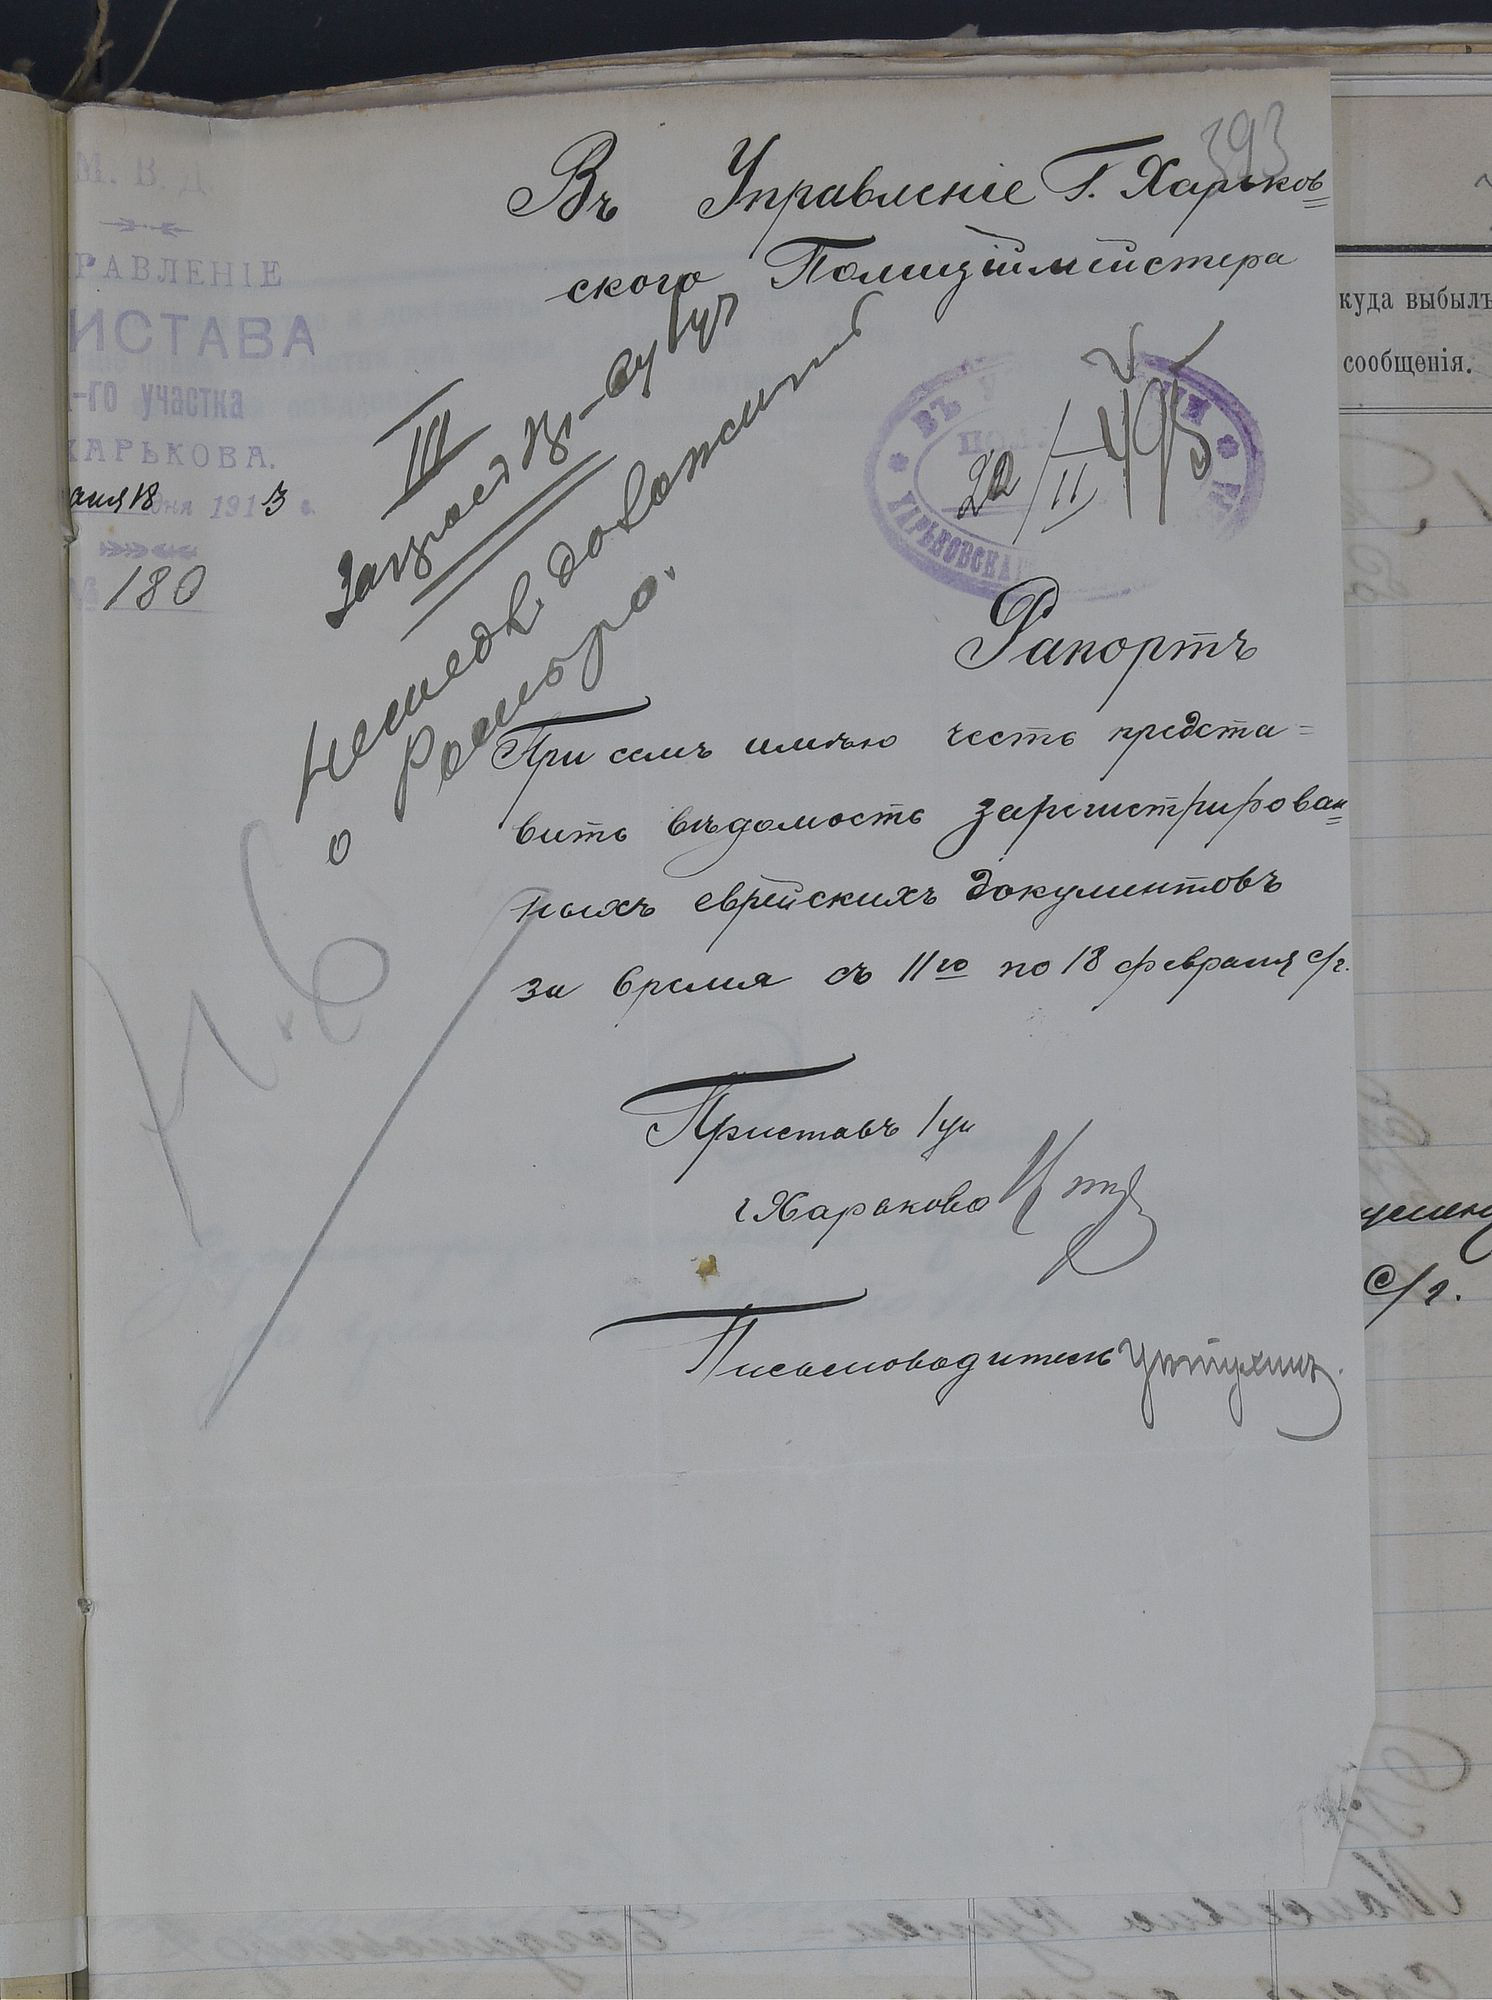 393
М. В. Д.
РАВЛЕНІЕ
ИСТАВА
-го участка
ХАРЬКОВА.
аля 18 дня 1913 г.
№ 180
Въ Управленіе Г. Харьков=
скаго Полиціймейстера
III
немедл. доложить
о
22/II 495
ВЪ У
ХАРЬКОВСКА
Рапортъ
При семъ имѣю честь предста=
вить вѣдомость зарегистрирован=
ныхъ еврейскихъ документовъ
за время съ 11го по 18 февраля с/г.
Н. 6
Приставъ 1 уч
г Харькова
Письмоводитель
куда выбылъ
сообщенія.
с/г.